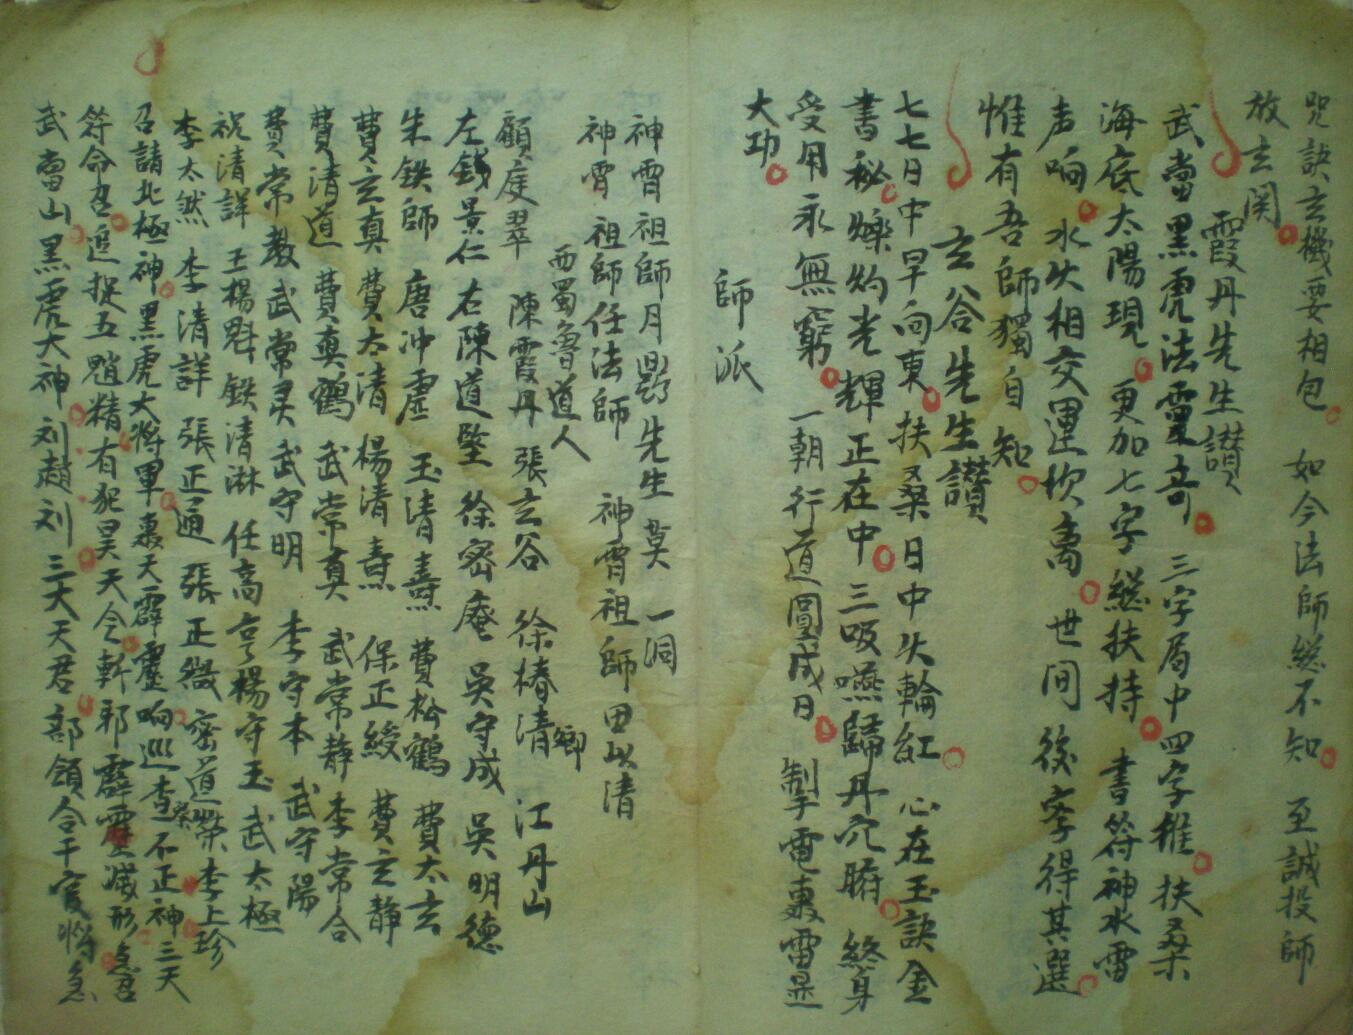 咒訣玄機要相包 如今法師緫不知 至誠投師
放玄関
霞丹先生讃
武當黑虎法靈奇 三字局中四字推 扶桑
海底太陽現 更加七字緫扶持 書符神水雷
声响 水火相交運坎离 世间後学得其選
惟有吾師獨自知
玄谷先生讃
七七日中早向東 扶桑日中火輪紅 心在玉訣金
書秘 爍灼光輝正在中 三吸嚥歸丹穴腑 終身
受用永無窮 一朝行道圓成日 掣電轟雷显
大功
師派
神霄祖師月鼎先生莫一洞
神霄祖師任法師 神霄祖師田以清
西蜀魯道人
顧庭翠 陳霞丹 張玄谷 徐椿清 卿 江丹山
左錢景仁 右陳道堅 徐密庵 吳守成 吳明德
朱鉄師 唐冲虛 玉清燾 費松鶴 費太玄
費玄真 費太清 楊清燾 保正綬 費玄静
費清道 費真鶴 武常真 武常静 李常合
費常教 武常灵 武守明 李守本 武守陽
祝清詳 王楊魁 鉄清淋 任高亨 楊守玉 武太極
李太然 李清詳 張正通 張正 密道榮 李上珍
召請北極神黑虎大將軍轟天霹靂响巡查不正神三天
符命吾追捉五魈精有犯昊天令斬邪霹靂滅形急召
武當山黑虎大神刘趙刘三大天君部領合干官將急